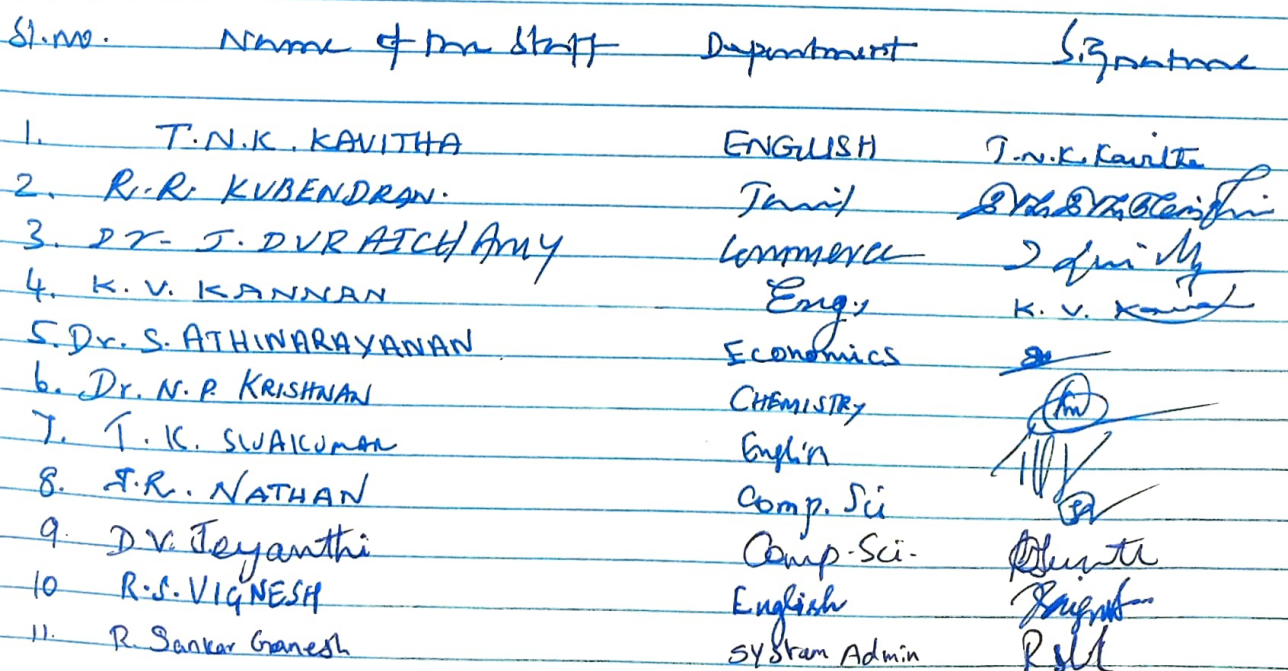 Sl.no. Name of the Staff Department Signature
1. T.N.K. KAVITHA ENGLISH T.N.K. Kavitha
2. R.R. KUBENDRAN. Tamil
3. Dr. J. DURAICHAmy Commerce
4. K. V. KANNAN Eng. K. V. Kannan
5. Dr. S. ATHINARAYANAN Economics
6. Dr. N. P. KRISHNAN CHEMISTRY
7. T. K. SIVAKUMAR English
8. NATHAN Comp. Sci
9. D.V. Jeyanthi Comp-Sci-
10 R.S. VIGNESH English
11. R. Sankar Ganesh System Admin